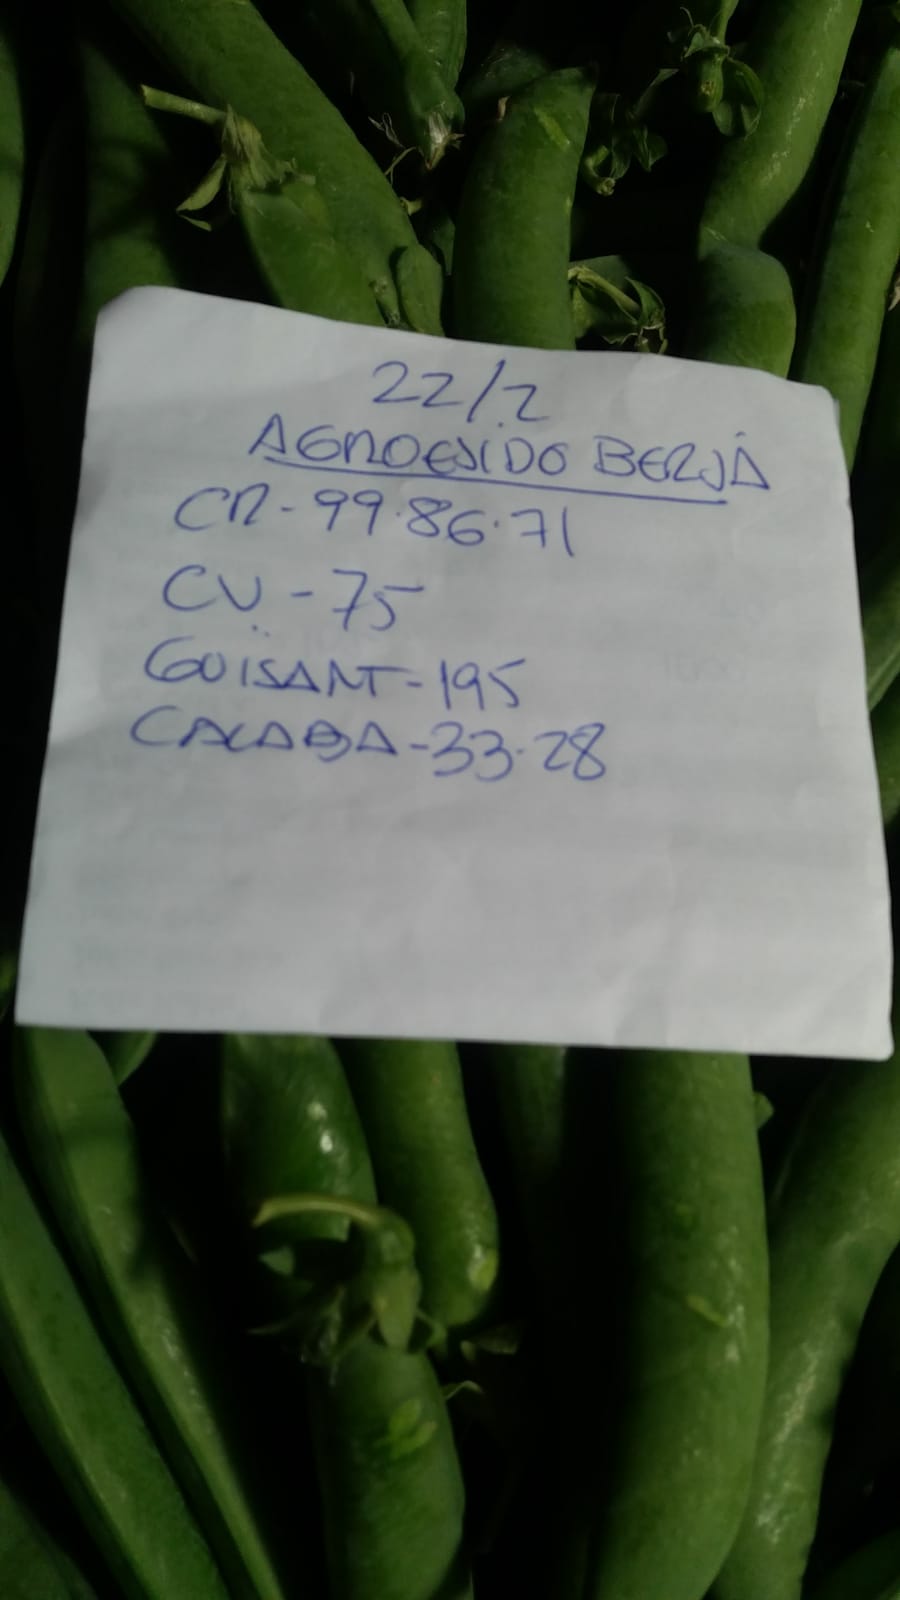 22/2
AGROEJIDO BERJA
CR-99.86.71
CU-75
GUISANT-195
CALABA-33.28